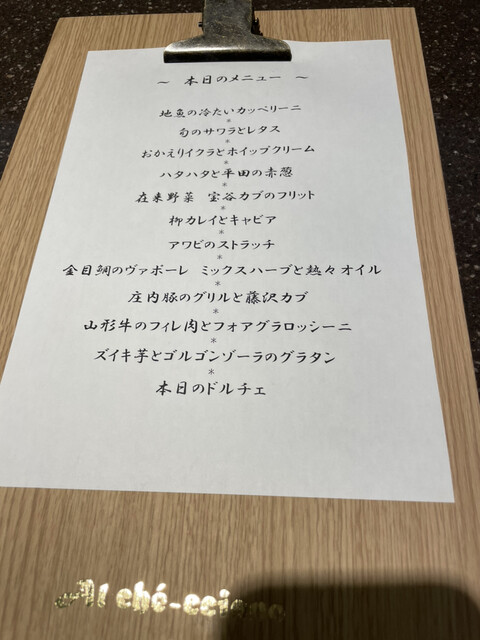 ～ 本日のメニュー ～
地魚の冷たいカッペリーニ
*
旬のサワラとレタス
*
おかえりイクラとホイップクリーム
*
ハタハタと平田の赤葱
*
在来野菜 宝谷カブのフリット
*
柳カレイとキャビア
*
アワビのストラッチ
*
金目鯛のヴァポーレ ミックスハーブと熱々オイル
*
庄内豚のグリルと藤沢カブ
*
山形牛のフィレ肉とフォアグラロッシーニ
*
ズイキ芋とゴルゴンゾーラのグラタン
*
本日のドルチェ
Al ché-cciano